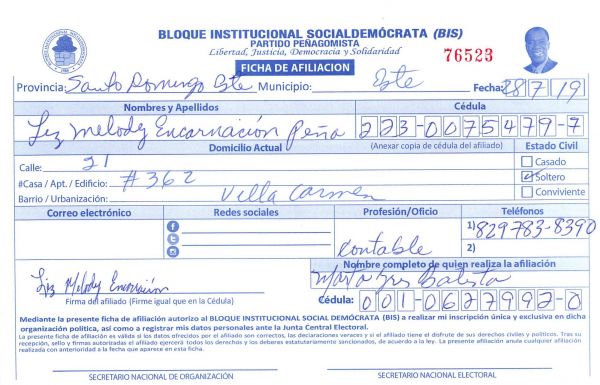 BLOQUE INSTITUCIONAL SOCIALDEMÓCRATA (BIS)
PARTIDO PEÑAGOMISTA
Libertad, Justicia, Democracia y Solidaridad
76523
FICHA DE AFILIACION
Provincia: Santo Domingo Este Municipio: Este Fecha: 28/7/19
Nombres y Apellidos Cédula
Liz Melody Encarnación Peña 223-0075479-7
Domicilio Actual (Anexar copia de cédula del afiliado) Estado Civil
Calle: 21 Casado
#Casa / Apt. / Edificio: #362 Soltero
Barrio / Urbanización: Villa Carmen Conviviente
Correo electrónico Redes sociales Profesión/Oficio Teléfonos
1) 829783-8390
Contable 2)
Nombre completo de quien realiza la afiliación
Liz Melody Encarnación Batista
Firma del afiliado (Firme igual que en la Cédula) Cédula: 001-0627992-0
Mediante la presente ficha de afiliación autorizo al BLOQUE INSTITUCIONAL SOCIAL DEMÓCRATA (BIS) a realizar mi inscripción única y exclusiva en dicha
organización política, así como a registrar mis datos personales ante la Junta Central Electoral.
La presente ficha de afiliación es válida si los datos ofrecidos por el afiliado son correctos, las declaraciones veraces y si el afiliado tiene el disfrute de sus derechos civiles y políticos. Tras su
recepción, sello y firmas autorizadas el afiliado ejercerá todos los derechos y los deberes estatutariamente sancionados, de acuerdo a la ley. La presente afiliación anula cualquier afiliación
realizada con anterioridad a la fecha que aparece en esta ficha.
SECRETARIO NACIONAL DE ORGANIZACIÓN SECRETARIO NACIONAL ELECTORAL